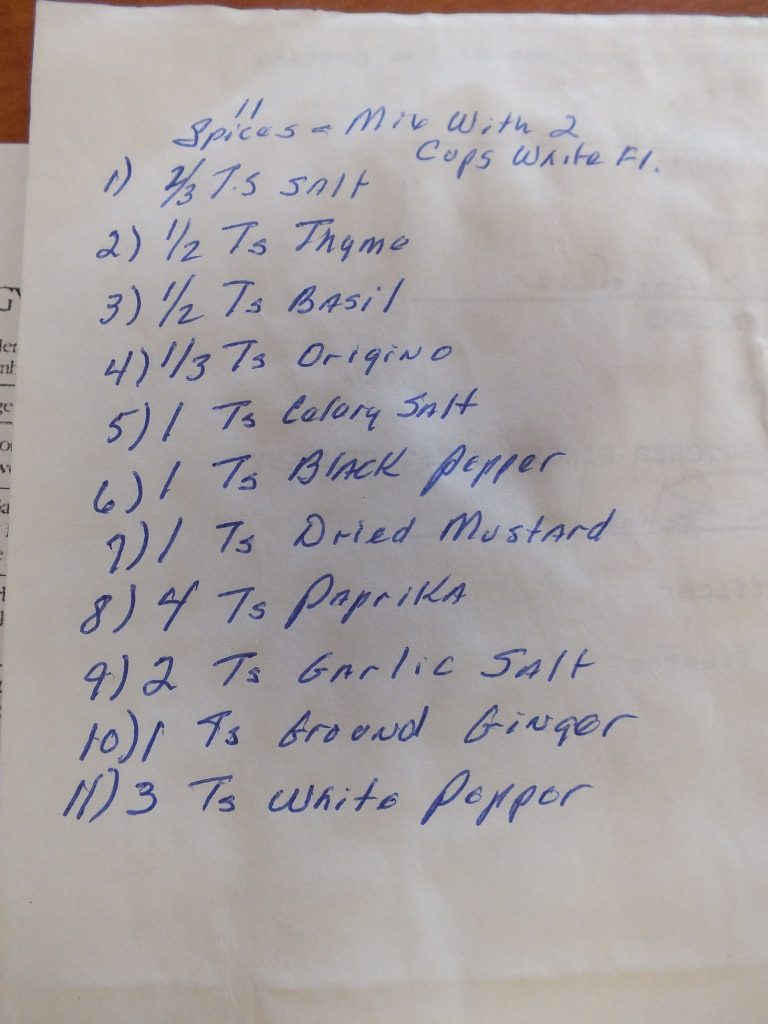 11
Spices - Mix With 2
Cups White Fl.
1) 2/3 T.S Salt
2) 1/2 Ts Thyme
3) 1/2 Ts Basil
4) 1/3 Ts Origino
5) 1 Ts Celary Salt
6) 1 Ts Black Pepper
7) 1 Ts Dried Mustard
8) 4 Ts Paprika
9) 2 Ts Garlic Salt
10) 1 Ts Ground Ginger
11) 3 Ts White Pepper